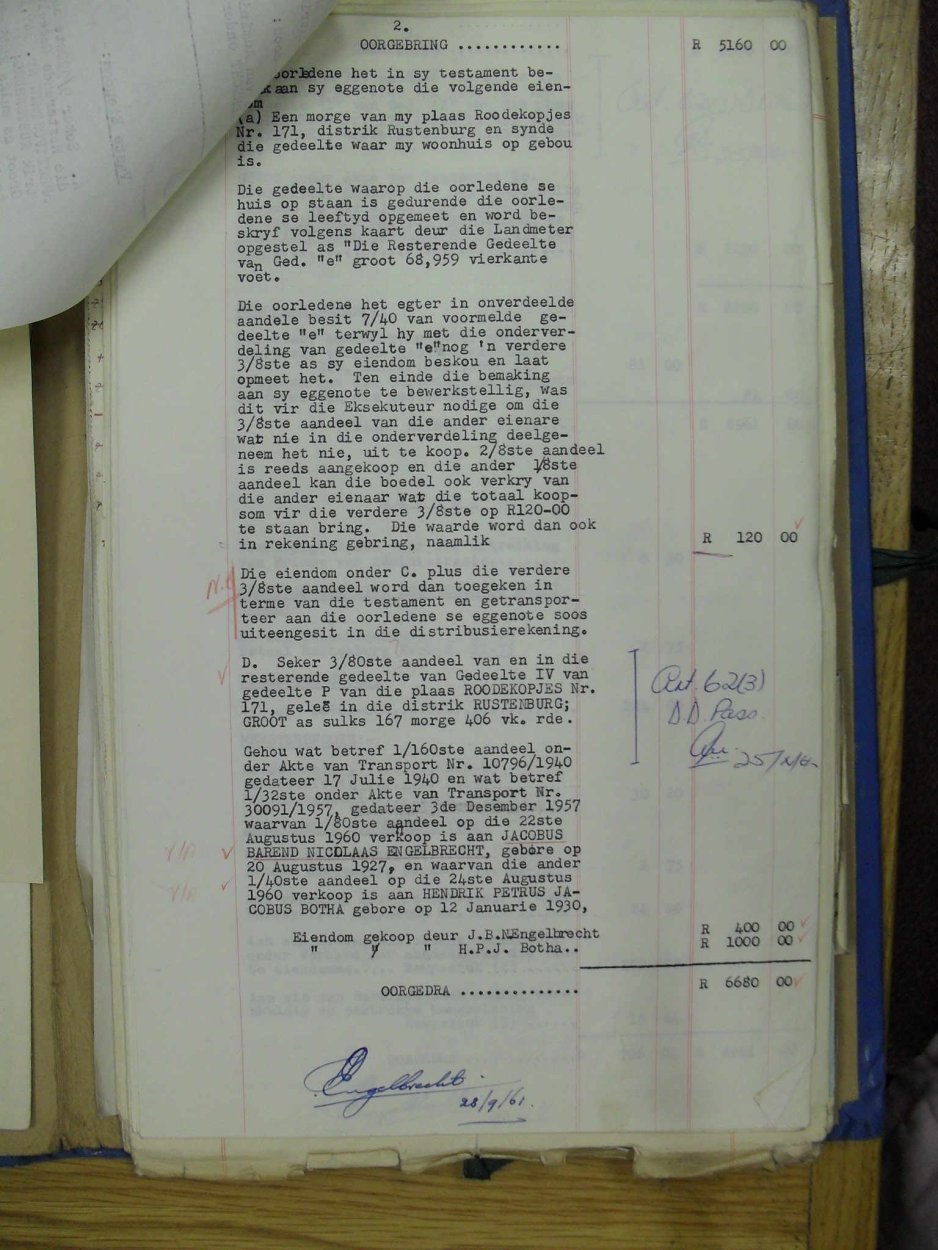 2.
OORGEBRING ............ R 5160 00
oorledene het in sy testament be-
aan sy eggenote die volgende eien-
om
(a) Een morge van my plaas Roodekopjes
Nr. 171, distrik Rustenburg en synde
die gedeelte waar my woonhuis op gebou
is.
Die gedeelte waarop die oorledene se
huis op staan is gedurende die oorle-
dene se leeftyd opgemeet en word be-
skryf volgens kaart deur die Landmeter
opgestel as "Die Resterende Gedeelte
van Ged. "e" groot 68,959 vierkante
voet.
Die oorledene het egter in onverdeelde
aandele besit 7/40 van voormelde ge-
deelte "e" terwyl hy met die onderver-
deling van gedeelte "e"nog 'n verdere
3/8ste as sy eiendom beskou en laat
opmeet het. Ten einde die bemaking
aan sy eggenote te bewerkstellig, was
dit vir die Eksekuteur nodige om die
3/8ste aandeel van die ander eienare
wat nie in die onderverdeling deelge-
neem het nie, uit te koop. 2/8ste aandeel
is reeds aangekoop en die ander 1/8ste
aandeel kan die boedel ook verkry van
die ander eienaar wat die totaal koop-
som vir die verdere 3/8ste op R120-00
te staan bring. Die waarde word dan ook
in rekening gebring, naamlik R 120 00
Die eiendom onder C. plus die verdere
3/8ste aandeel word dan toegeken in
terme van die testament en getranspor-
teer aan die oorledene se eggenote soos
uiteengesit in die distribusierekening.
D. Seker 3/80ste aandeel van en in die
resterende gedeelte van Gedeelte IV van
gedeelte P van die plaas ROODEKOPJES Nr.
171, geleë in die distrik RUSTENBURG;
GROOT as sulks 167 morge 406 vk. rde.
Art. 62(3)
D.D. Pass.
Gehou wat betref 1/160ste aandeel on-
der Akte van Transport Nr. 10796/1940
gedateer 17 Julie 1940 en wat betref
1/32ste onder Akte van Transport Nr.
30091/1957, gedateer 3de Desember 1957
waarvan 1/80ste aandeel op die 22ste
Augustus 1960 verkoop is aan JACOBUS
BAREND NICOLAAS ENGELBRECHT, gebore op
20 Augustus 1927, en waarvan die ander
1/40ste aandeel op die 24ste Augustus
1960 verkoop is aan HENDRIK PETRUS JA-
COBUS BOTHA gebore op 12 Januarie 1930,
Eiendom gekoop deur J.B.N.Engelbrecht R 400 00
" " " H.P.J. Botha.. R 1000 00
OORGEDRA .............. R 6680 00
Engelbrecht.
28/9/61.